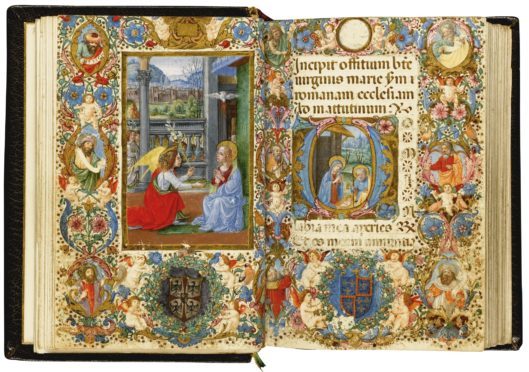 Incipit offitium bte
uirginis marie
romanam ecclesiam
Ad matutinum
D
labia mea aperies
Et os meum